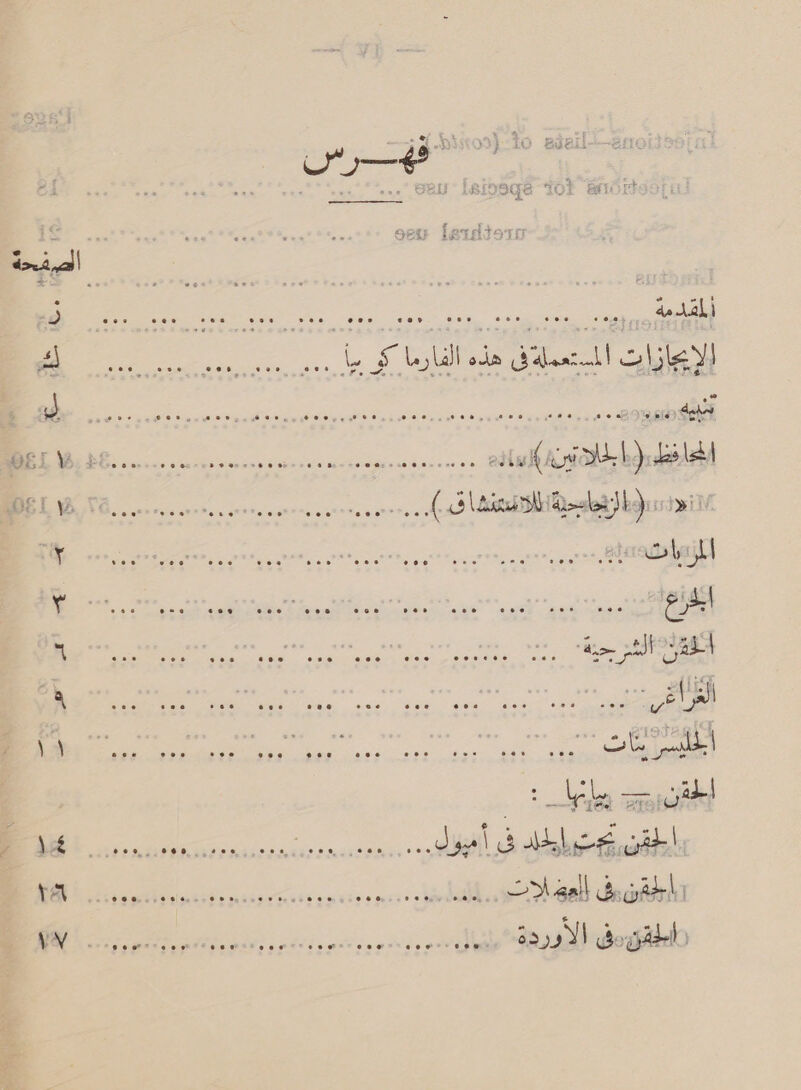 فهـــرس
الصفحة
المقدمة ... ... ... ... ... ... ... ... ... ... ... ز
الإيجازات المستعملة فى هذه الفارما كو بيا ... ... ... ... ... ك
تنبيه ... ... ... ... ... ... ... ... ... ... ... ل
المحافظ (الجلاتين) ... ... ... ... ... ... ... ... ١
« (الزجاجية للاستنشاق) ... ... ... ... ... ... ... ١
المربات ... ... ... ... ... ... ... ... ... ... ... ٢
الجرع ... ... ... ... ... ... ... ... ... ... ... ٣
الحقن الشرجية ... ... ... ... ... ... ... ... ... ... ٦
الغراغر ... ... ... ... ... ... ... ... ... ... ... ٩
الجليسرينات ... ... ... ... ... ... ... ... ... ... ١١
الحقن — بيانها :
الحقن تحت الجلد فى أمبول ... ... ... ... ... ... ... ١٤
الحقن فى العضلات ... ... ... ... ... ... ... ... ١٦
الحقن فى الأوردة ... ... ... ... ... ... ... ... ١٧